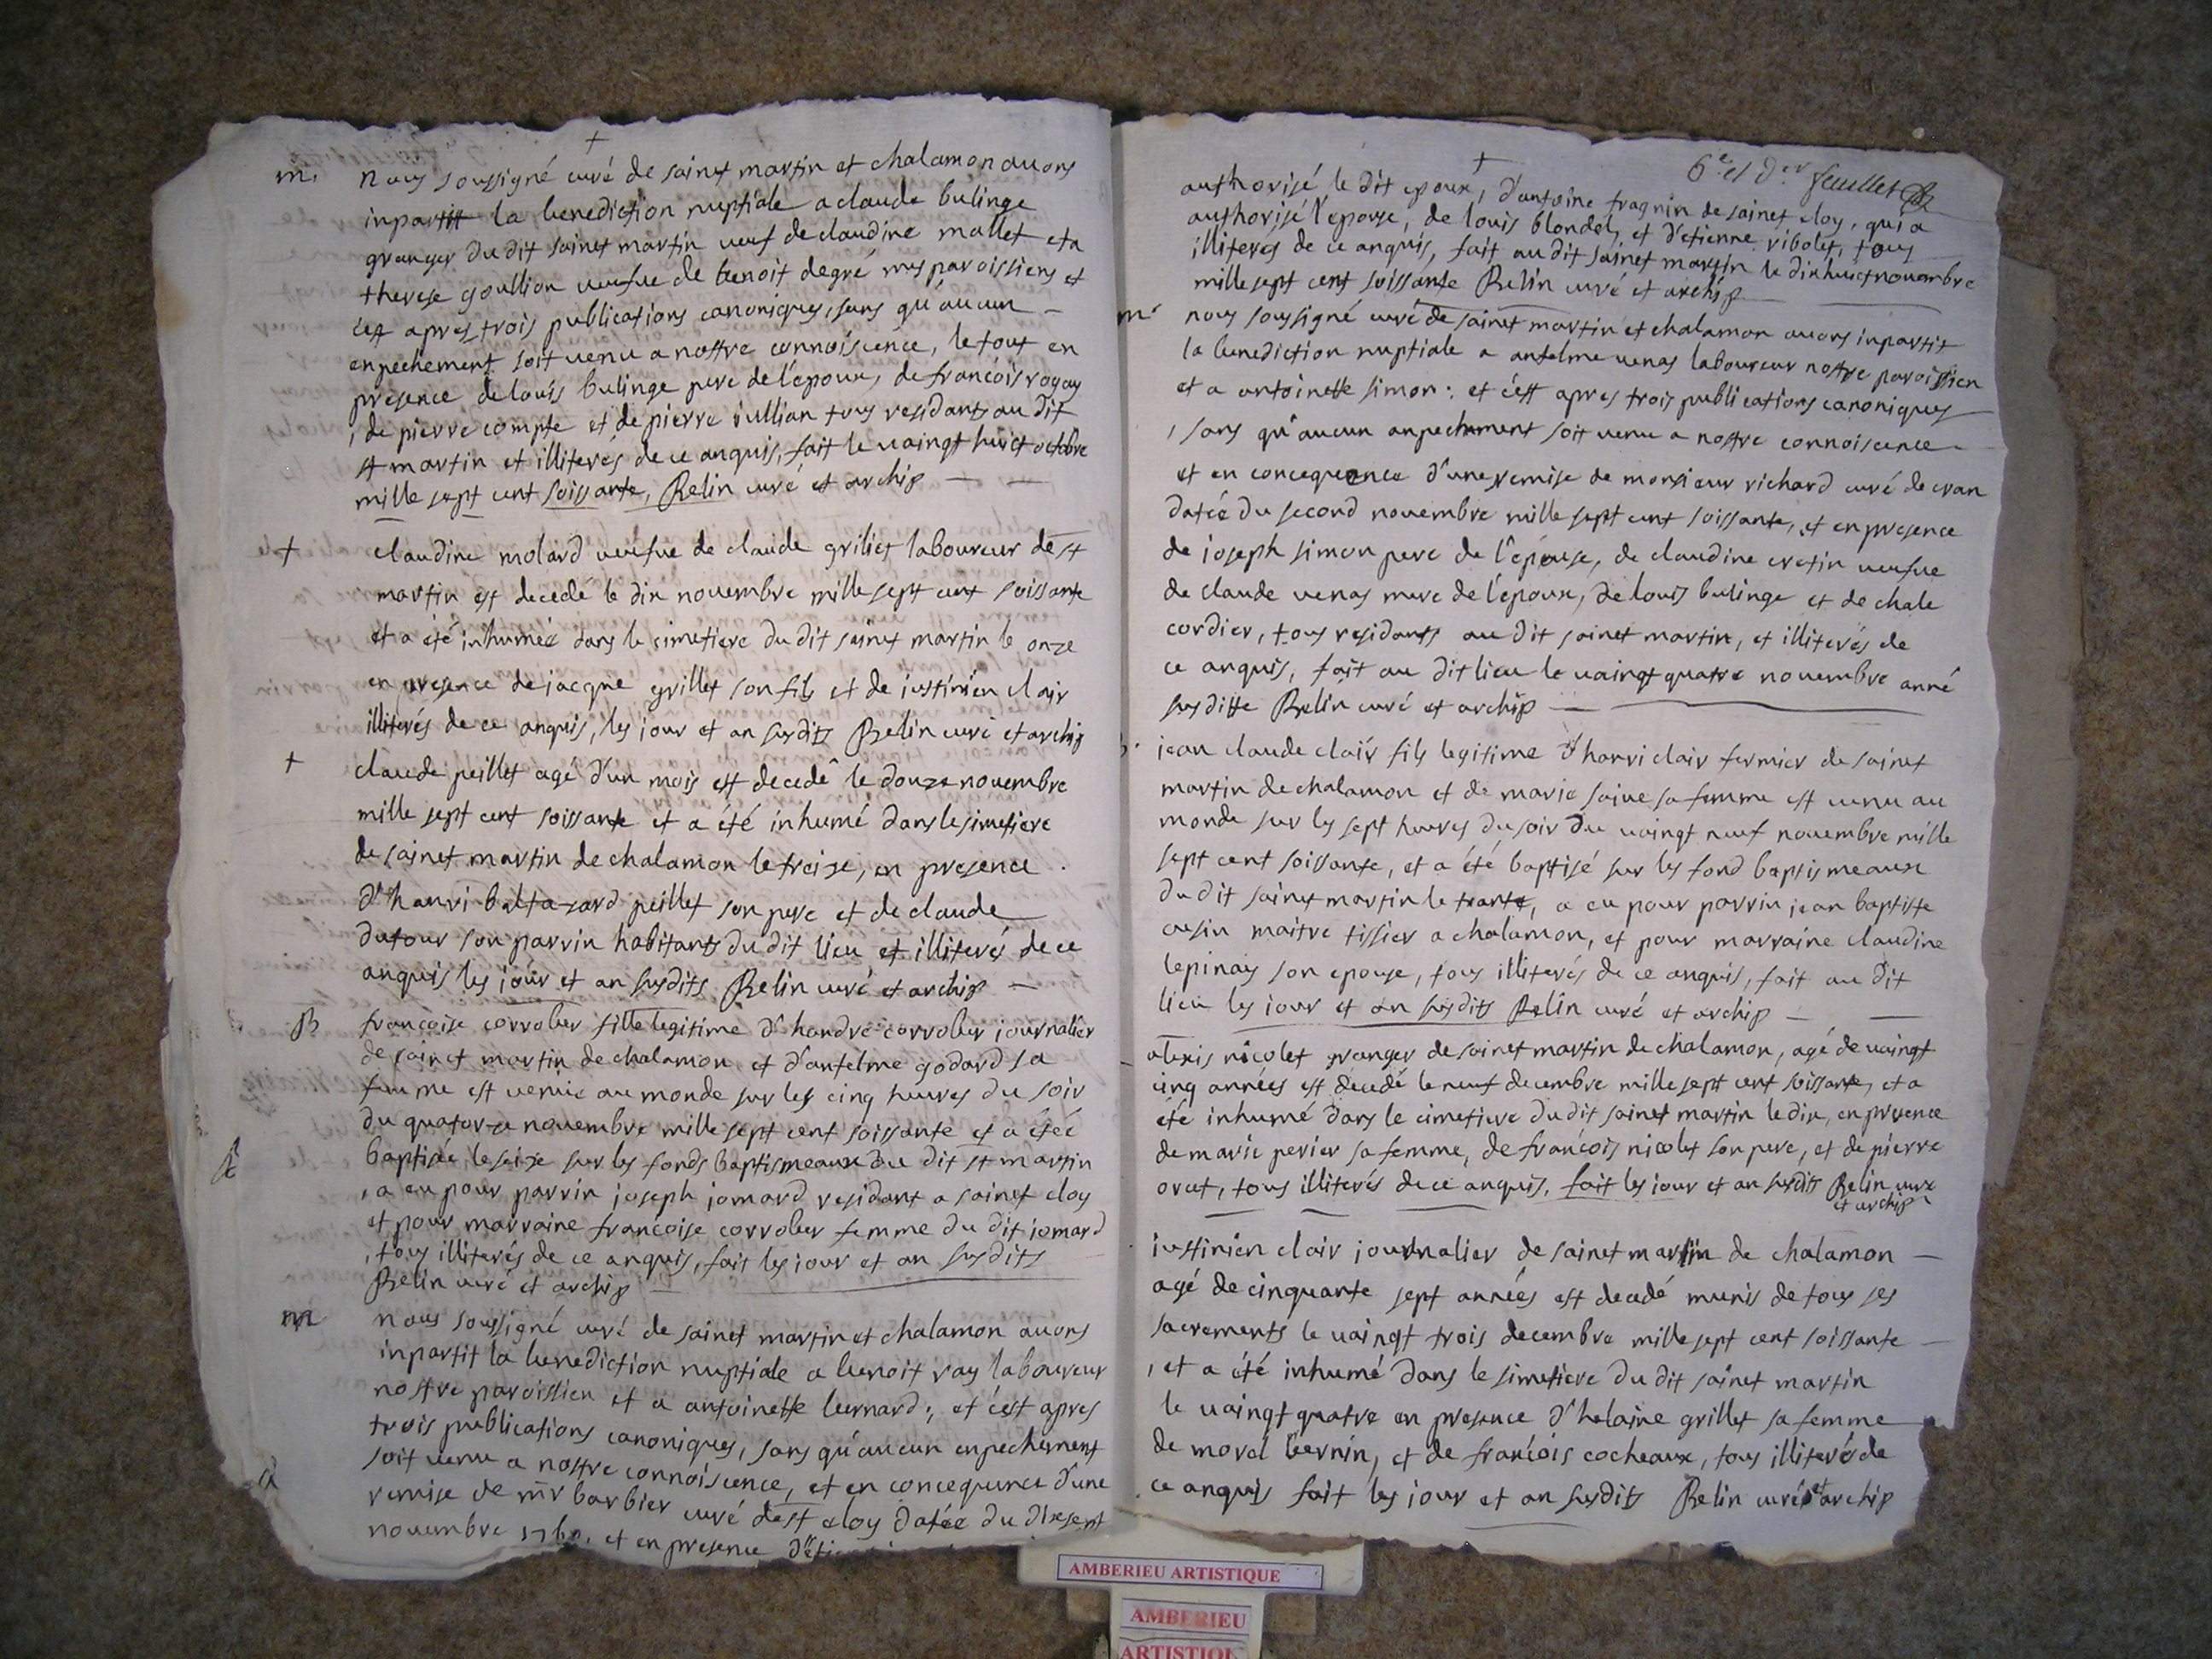 m.
nous soussigné curé de sainct martin et chalamon auons
inpartit la benediction nuptiale a claude bulinge
granger du dit sainct martin ueuf de claudine mallet et a
therese goullion ueufue de benoit degré mes paroissiens et
cest apres trois publications canoniques, sans qu'aucun
enpechement soit uenu a nostre connoiscence, le tout en
presence de louis bulinge pere de l'epoux, de francois rogay
, de pierre compte et de pierre iullian tous residants au dit
st martin et illiterés de ce anquis, fait le uaingt huict octobre
mille sept cent soissante, Relin curé et archip
+
claudine molard ueufue de claude griliet laboureur de st
martin est decedé le dix nouembre mille sept cent soissante
et a été inhumée dans le cimetiere du dit sainct martin le onze
en presence de jacque grillet son fils et de iustinien clair
illiterés de ce anquis, les iour et an susdits Relin curé et archip
+
claude peillet agé d'un mois est decedé le douze nouembre
mille sept cent soissante et a été inhumé dans le simetiere
de sainct martin de chalamon le treize, en presence
d'hanri baltazard peillet son pere et de claude
dufour son parrin habitants du dit lieu et illiterés de ce
anquis les iour et an susdits Relin curé et archip
B
francoise corrober fille legitime d'handré corrober iournalier
de sainct martin de chalamon et d'antelme godard sa
femme est uenue au monde sur les cinq heures du soir
du quatorze nouembre mille sept cent soissante et a étéé
baptisée le seize sur les fonds baptismeaux du dit st martin
, a eu pour parrin joseph jomard residant a sainct eloy
et pour marraine francoise corrober femme du dit iomard
, tous illiterés de ce anquis, fait les iour et an susdits
Relin curé et archip
m
nous soussigné curé de sainct martin et chalamon auons
inpartit la benediction nuptiale a benoit ray laboureur
nostre paroissien et a antoinette bernard; et c'est apres
trois publications canoniques, sans qu'aucun enpechement
soit uenu a nostre connoiscence, et en concequence d'une
remise de mr barbier curé de st eloy datée du dixsept
nouembre 1760, et en presence
+
6e et der feuillet
authorisé le dit epoux, d'antoine fragnin de sainct eloy, qui a
authorisé l'epouse, de louis blondel, et d'etienne ribolet, tous
illiteres de ce anquis, fait au dit sainct martin le dixhuict nouembre
mille sept cent soissante Relin curé et archip
m
nous soussigné curé de sainct martin et chalamon auons inpartit
la benediction nuptiale a antelme uenas laboureur nostre paroissien
et a antoinette simon: et c'est apres trois publications canoniques
, sans qu'aucun anpechement soit uenu a nostre connoiscence
et en concequence d'une remise de monsieur richard curé de cran
datée du second nouembre mille sept cent soissante, et en presence
de ioseph simon pere de l'épouse, de claudine cretin ueufue
de claude uenas mere de l'epoux, de louis bulinge et de chale
cordier, tous residants au dit sainct martin, et illiterés de
ce anquis, fait au dit lieu le uaingt quatre nouembre anné
susditte Relin curé et archip
jean claude clair fils legitime d'hanri clair fermier de sainct
martin de chalamon et de marie saiue sa femme est uenu au
monde sur les sept heures du soir du uaingt neuf nouembre mille
sept cent soissante, et a été baptisé sur les fond baptismeaux
du dit sainct martin le trante, a eu pour parrin jean baptiste
cusin maitre tissier a chalamon, et pour marraine claudine
lepinay son epouse, tous illiterés de ce anquis, fait au dit
lieu les iour et an susdits Relin curé et archip
alexis nicolet granger de sainct martin de chalamon, agé de uaingt
cinq années est decedé le neuf decembre mille sept cent soissante, et a
été inhumé dans le cimetiere du dit sainct martin le dix, en presence
de marie perier sa femme, de francois nicolet son pere, et de pierre
orcet, tous illiterés de ce anquis, fait les iour et an susdits Relin curé
et archip
iustinien clair journalier de sainct martin de chalamon
agé de cinquante sept années est decedé munis de tous ses
sacrements le uaingt trois decembre mille sept cent soissante
, et a été inhumé dans le simetiere du dit sainct martin
le uaingt quatre en presence d'helaine grillet sa femme
de morel bernin, et de francois cocheaux, tous illiterés de
ce anquis fait les iour et an susdits Relin curé et archip
AMBERIEU ARTISTIQUE
AMBERIEU
ARTISTIQU